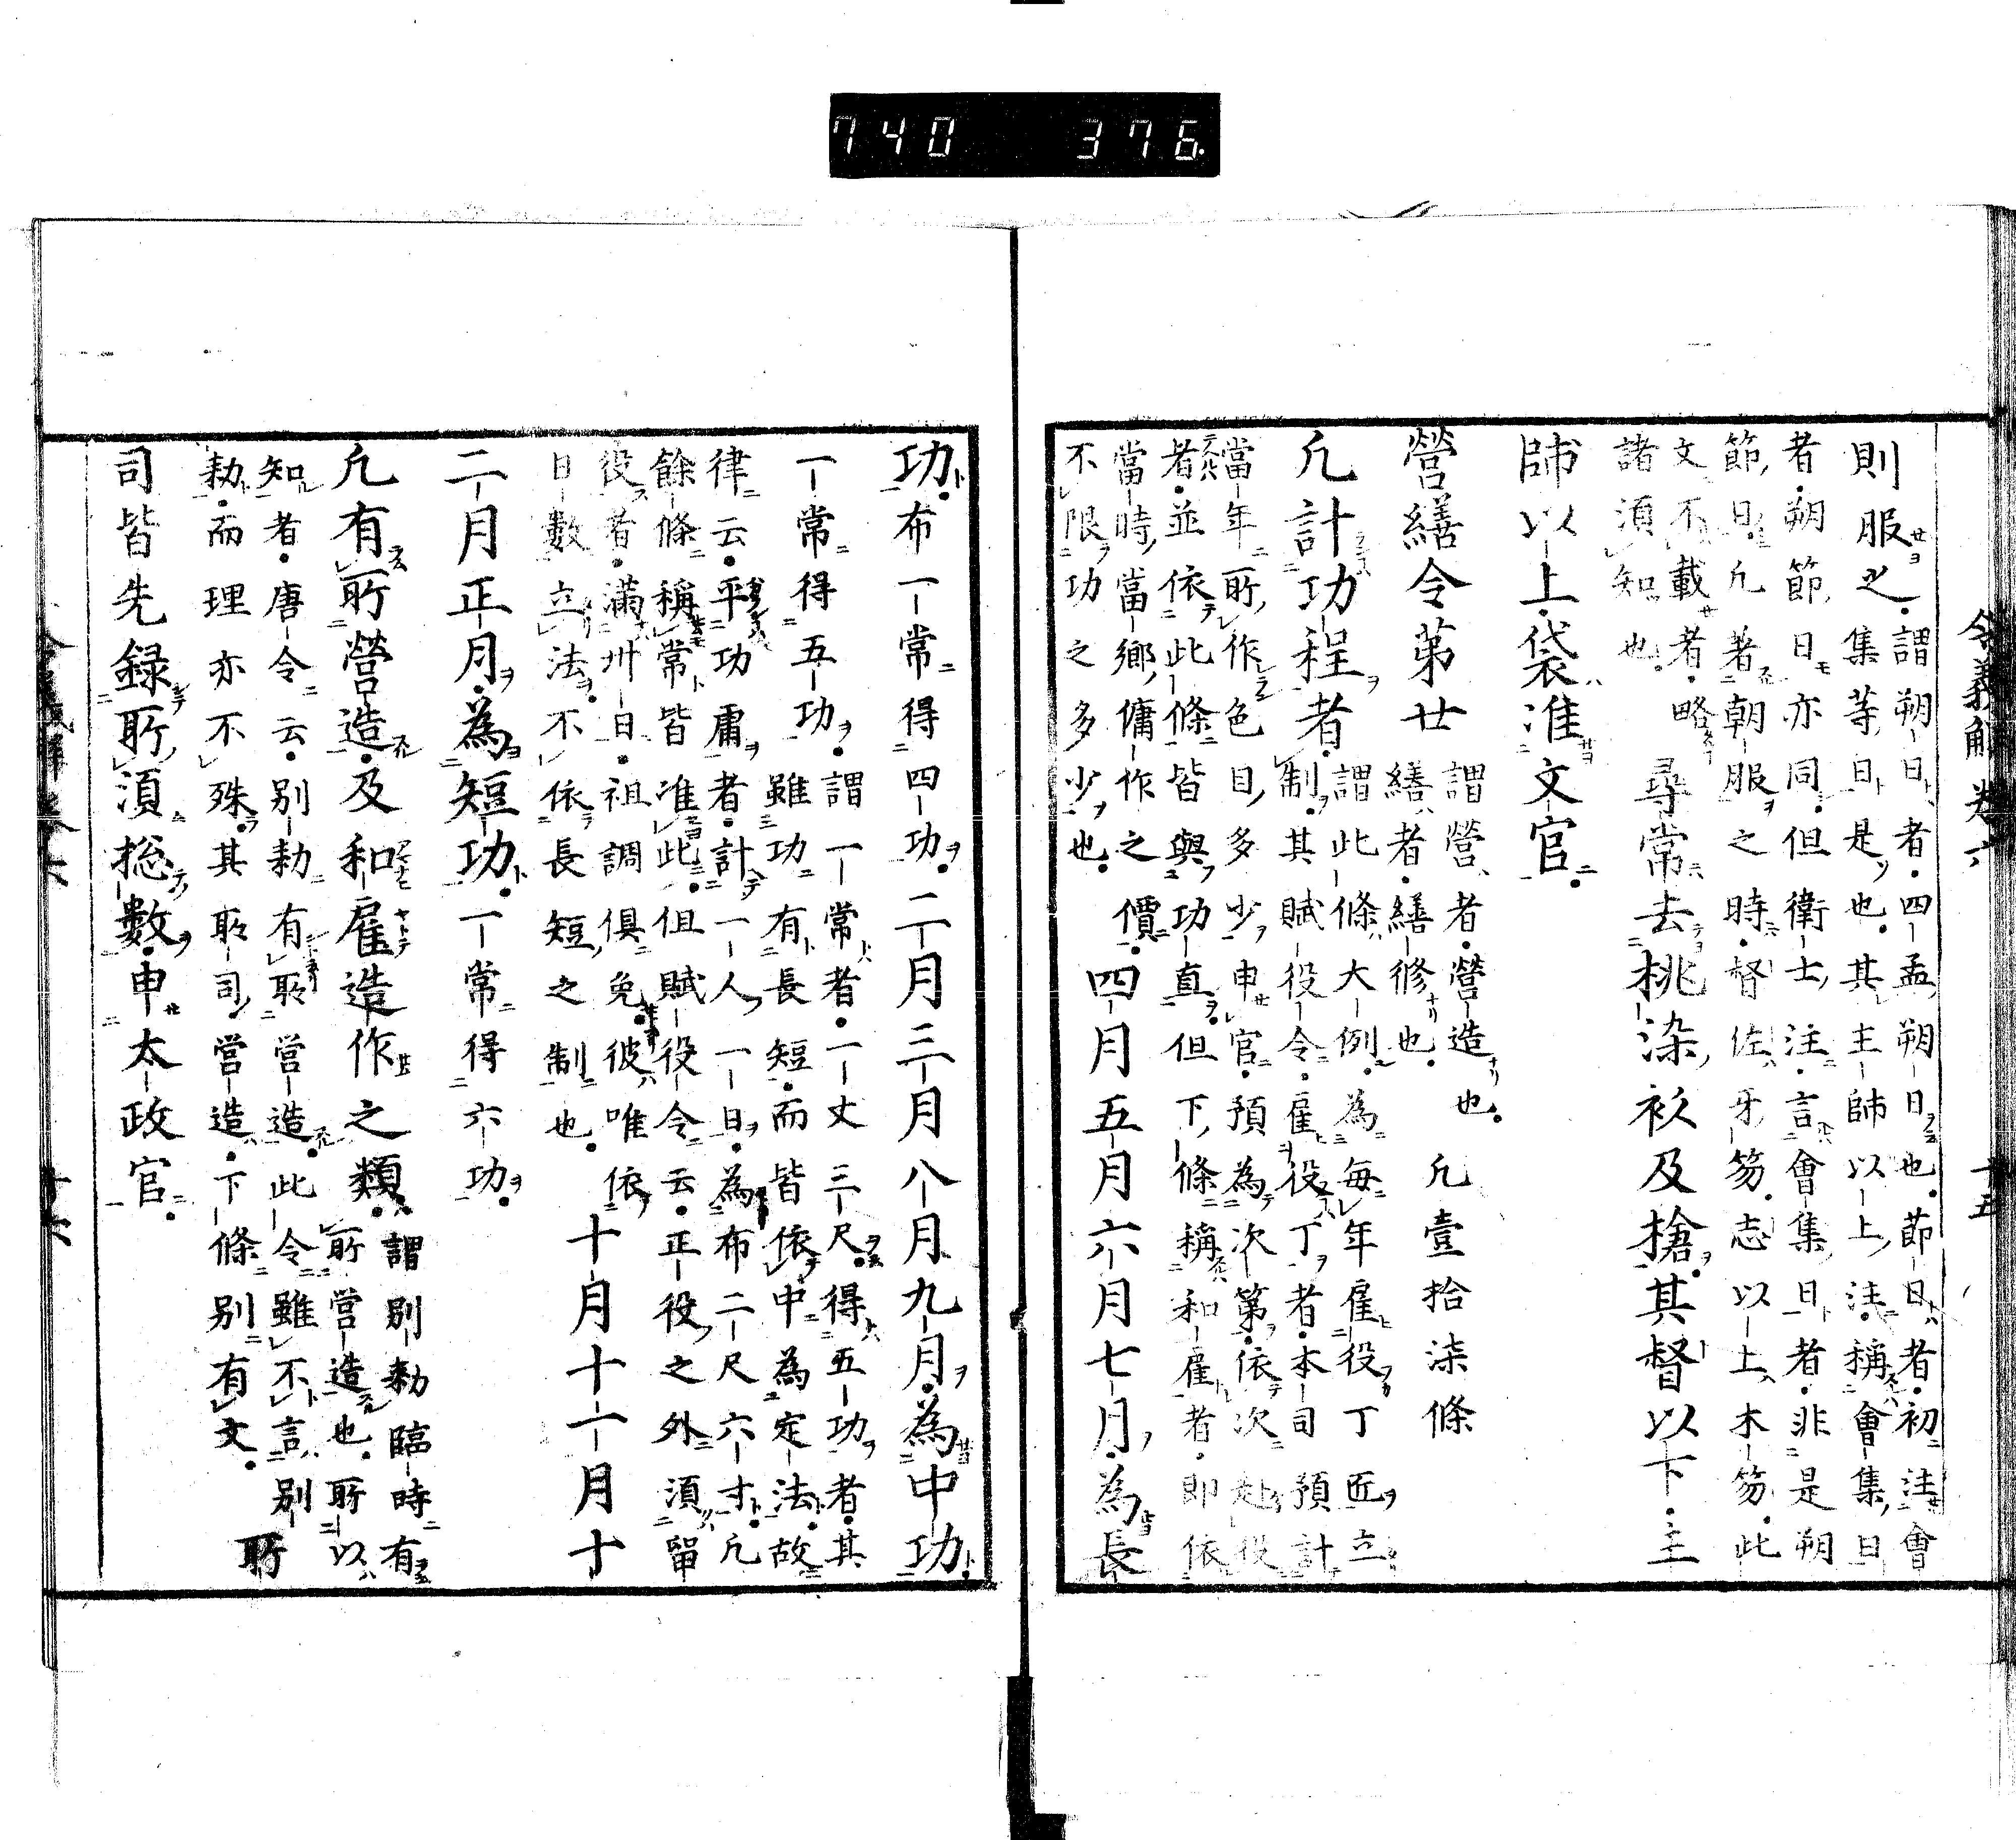 740 376
令義解卷六 十五
則服之。謂朔日者。四孟朔日也。節日者。初注會
集等日是也。其主帥以上注。稱會集日
者。朔節日亦同。但衛士注。言會集日者。非是朔
節日。凢著朝服之時。督佐牙笏。志以上木笏。此
文不載者。略
諸須知也。尋常去桃染衫及槍其督以下。主
帥以上。袋准文官。
營繕令第廿 謂營者。營造也。
繕者。繕修也。 凢壹拾柒條
凢計功程者。謂此條大例。為每年雇役丁匠立
制。其賦役令。雇役丁者。本司預計
當年所作色目多少申官。預為次第。依次赴役
者。並依此條皆與功直。但下條稱和雇者。即依
當時當鄉傭作之價。四月五月六月七月。為長
不限功之多少也。
功。布一常得四功。二月三月八月九月。為中功。
一常得五功。謂一常者。一丈三尺。得五功者。其
雖功有長短。而皆依中為定法。故
律云。平功庸者。計一人一日。為布二尺六寸。凢
餘條稱常皆准此。但賦役令云。正役之外須留
役者。滿卅日。祖調俱免。彼唯依
日數立法。不依長短之制也。十月十一月十
二月正月。為短功。一常得六功。
凢有所營造。及和雇造作之類。謂別勅臨時有
所營造也。所以
知者。唐令云。別勅有所營造。此令雖不言別
勅。而理亦不殊。其所司營造。下條別有文。所
司皆先録所須総數。申太政官。